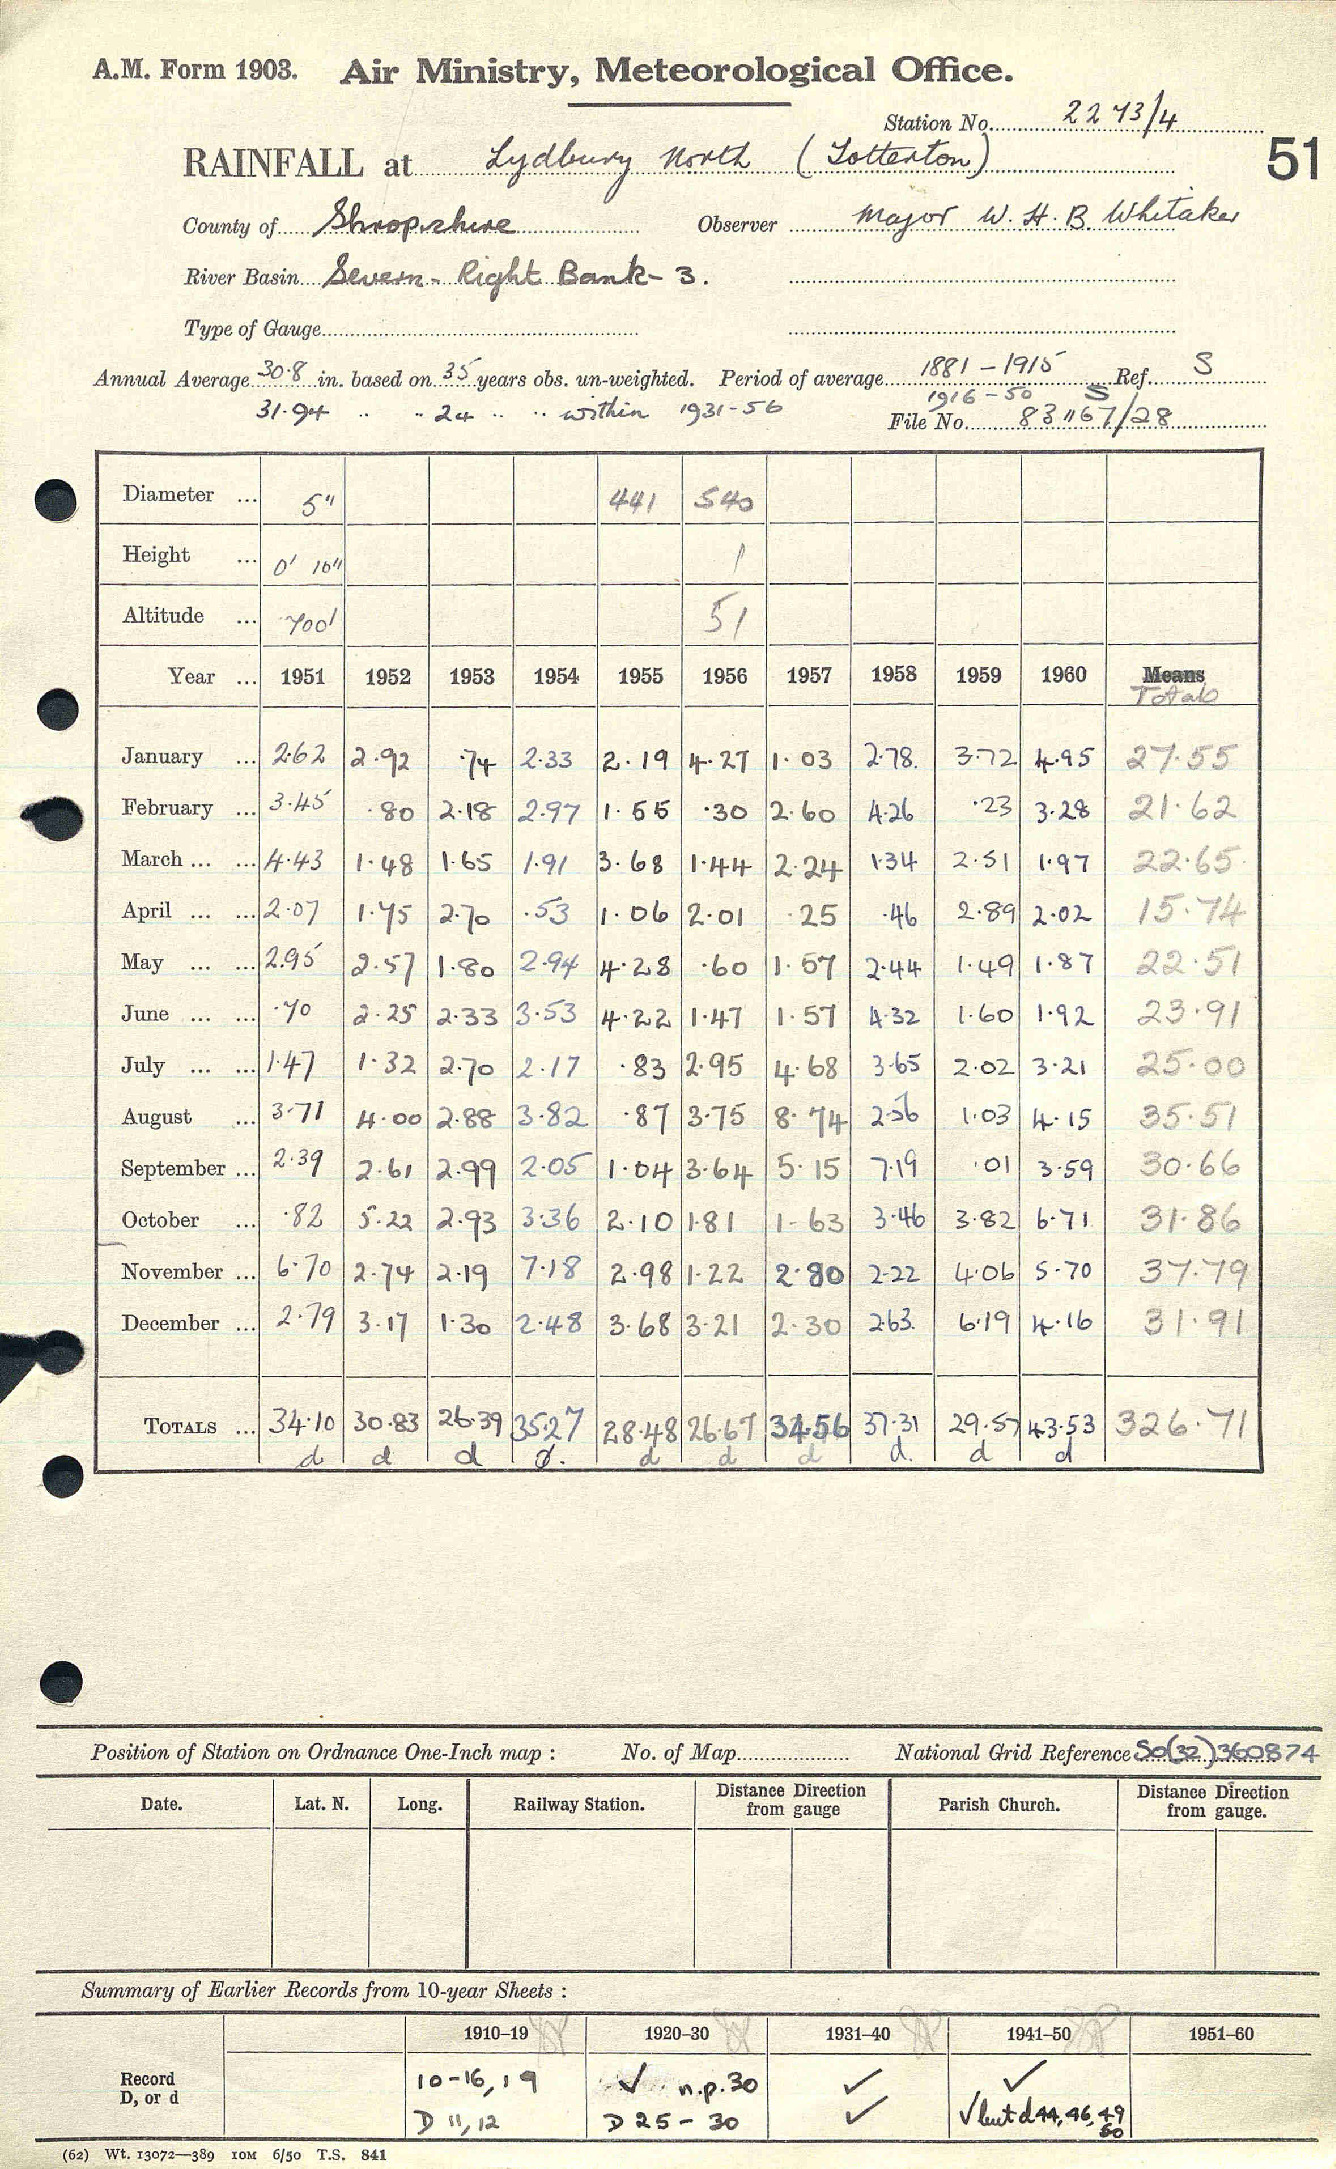 A.M. Form 1903. Air Ministry, Meteorological Office.
Station No. 2273/4
RAINFALL at Lydbury North (Totterton) 51
County of Shropshire Observer Major W. H. B. Whitaker
River Basin Severn - Right Bank - 3.
Type of Gauge
Annual Average 30.8 in. based on 35 years obs. un-weighted. Period of average 1881-1915 Ref. S
1916-50 S
31.94 .. .. 24 .. .. within 1931-56 File No. 83467/28
Diameter ... 5" 441 540
Height ... 0' 10" 1
Altitude ... 700' 51
Year ... 1951 1952 1953 1954 1955 1956 1957 1958 1959 1960 Means
Totals
January ... 2.62 2.92 .74 2.33 2.19 4.27 1.03 2.78 3.72 4.95 27.55
February ... 3.45 .80 2.18 2.97 1.55 .30 2.60 4.26 .23 3.28 21.62
March ... ... 4.43 1.48 1.65 1.91 3.68 1.44 2.24 1.34 2.51 1.97 22.65
April ... ... 2.07 1.75 2.70 .53 1.06 2.01 .25 .46 2.89 2.02 15.74
May ... ... 2.95 2.57 1.80 2.94 4.28 .60 1.57 2.44 1.49 1.87 22.51
June ... ... .70 2.25 2.33 3.53 4.22 1.47 1.57 4.32 1.60 1.92 23.91
July ... ... 1.47 1.32 2.70 2.17 .83 2.95 4.68 3.65 2.02 3.21 25.00
August ... 3.71 4.00 2.88 3.82 .87 3.75 8.74 2.56 1.03 4.15 35.51
September ... 2.39 2.61 2.99 2.05 1.04 3.64 5.15 7.19 .01 3.59 30.66
October ... .82 5.22 2.93 3.36 2.10 1.81 1.63 3.46 3.82 6.71 31.86
November ... 6.70 2.74 2.19 7.18 2.98 1.22 2.80 2.22 4.06 5.70 37.79
December ... 2.79 3.17 1.30 2.48 3.68 3.21 2.30 2.63 6.19 4.16 31.91
TOTALS ... 34.10 30.83 26.39 35.27 28.48 26.67 34.56 37.31 29.57 43.53 326.71
d d d d. d d d d. d d
Position of Station on Ordnance One-Inch map : No. of Map National Grid Reference SO(32)360874
Date. Lat. N. Long. Railway Station. Distance Direction from gauge Parish Church. Distance Direction from gauge.
Summary of Earlier Records from 10-year Sheets :
1910–19 1920–30 1931–40 1941–50 1951–60
Record 10-16, 19 ✓ n.p.30 ✓ ✓
D, or d D 11, 12 D 25-30 ✓ ✓ but d 44, 46, 49
50
(62) Wt. 13072—389 10M 6/50 T.S. 841